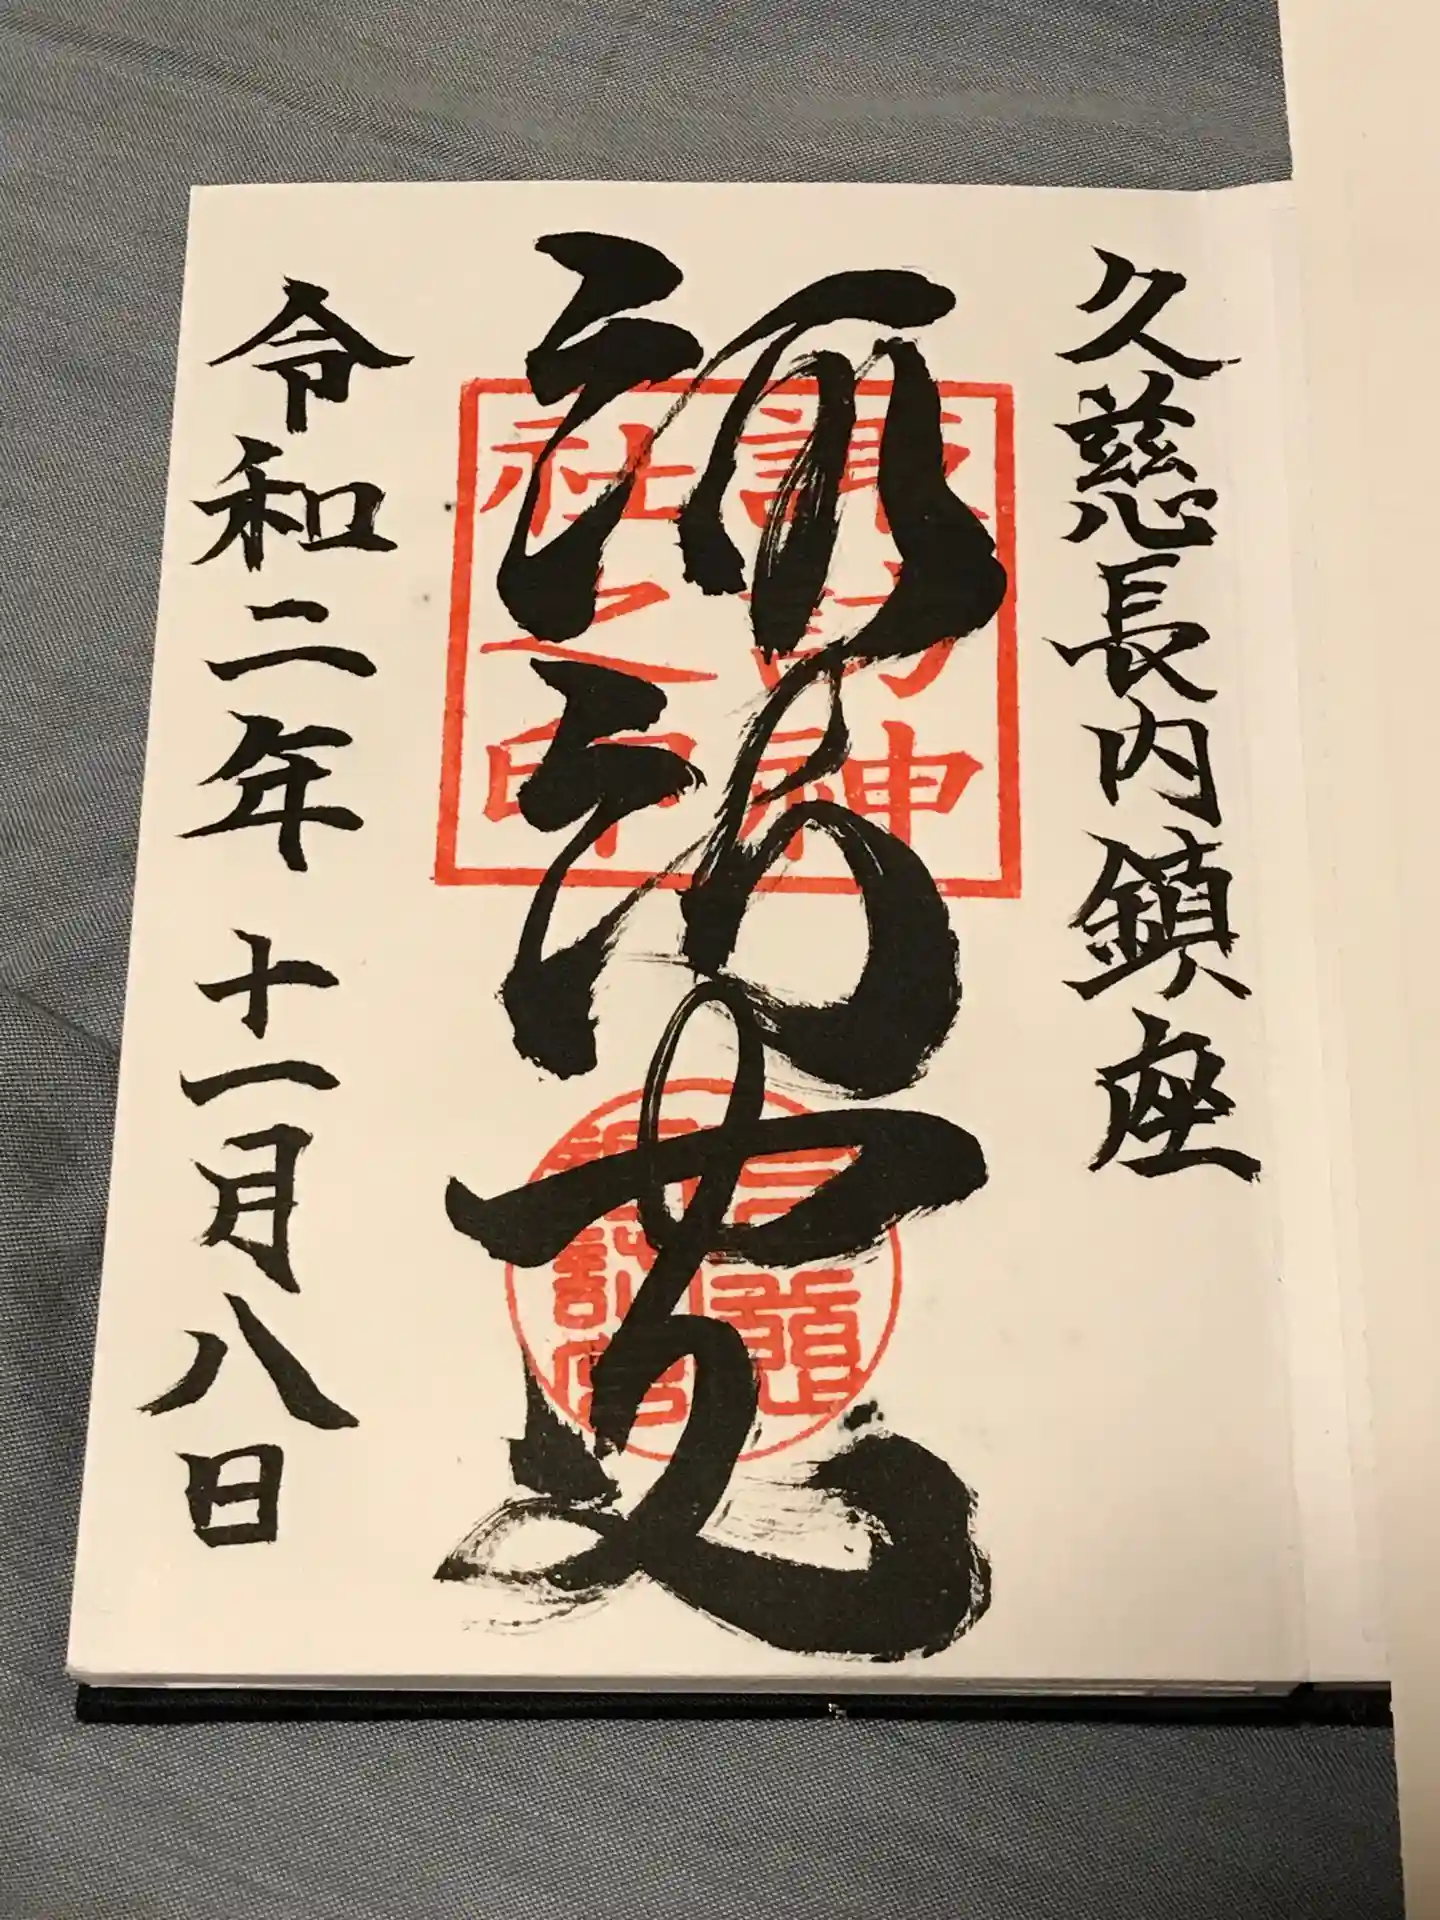 久慈長内鎮座
諏訪
諏訪神
社之印
令和二年十一月八日